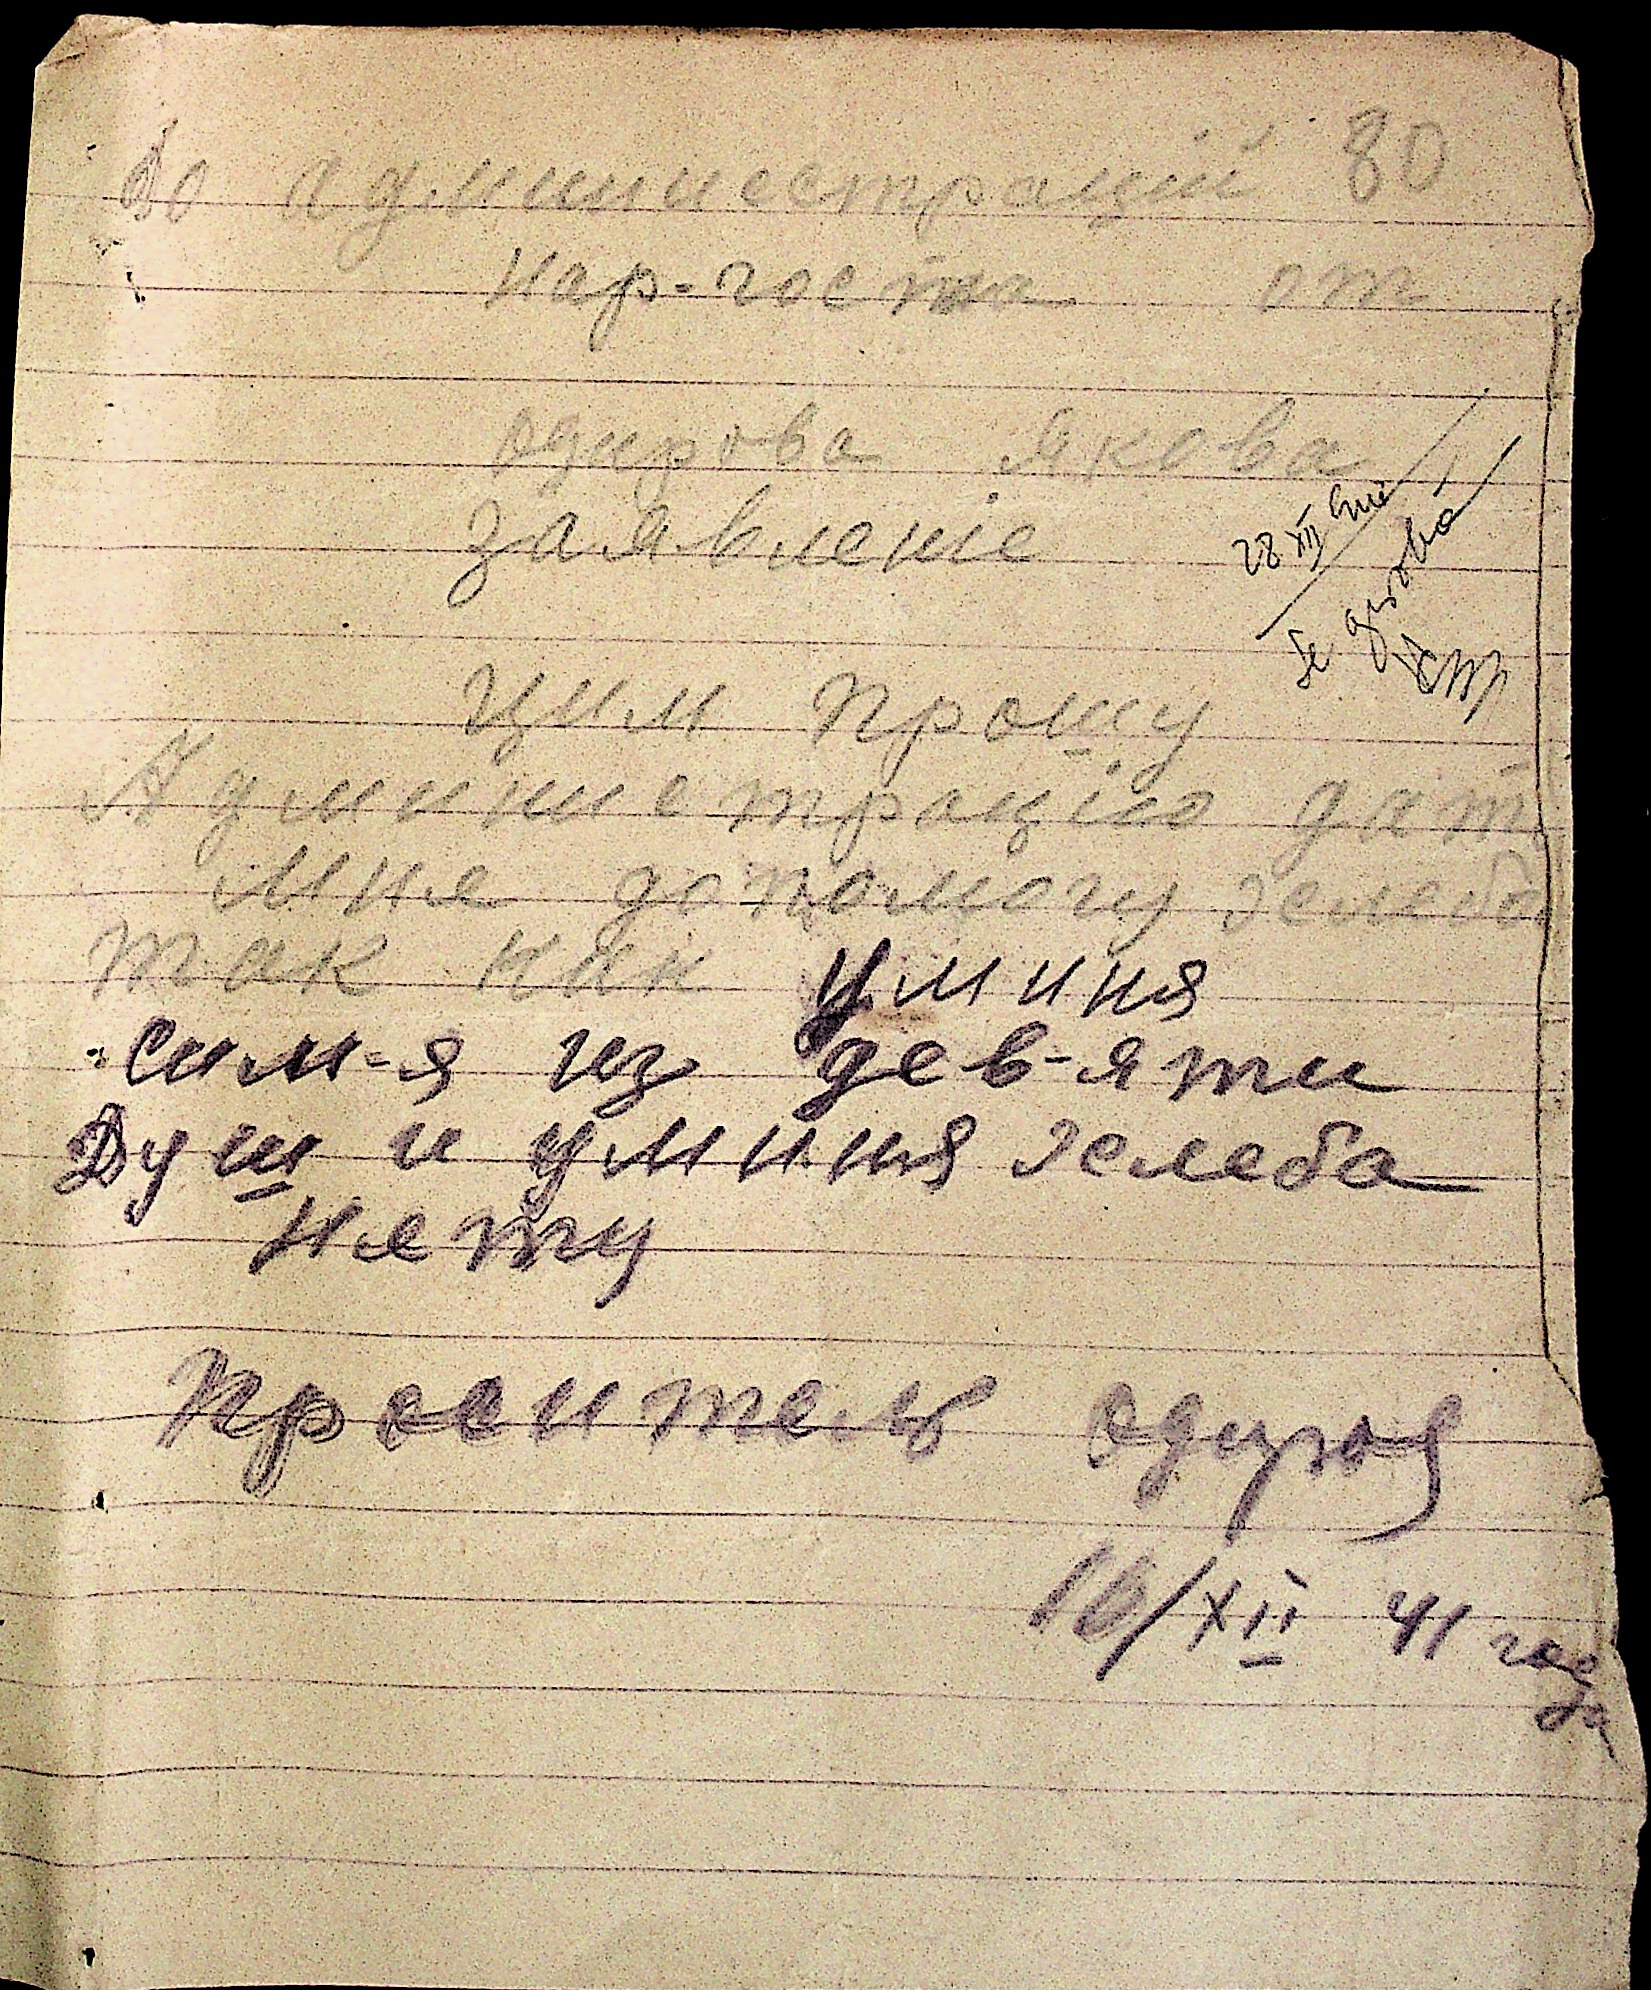 До администраций 80
нар-госта от
одирова Якова
заявленіе
28 XII
Se aprobă
Цим прошу
Администрацію дат
мне допомогу хелеба
так как уминя
сим-я из дев-яти
Душ и уминя хелеба
нету
проситель
16/XII 41 года